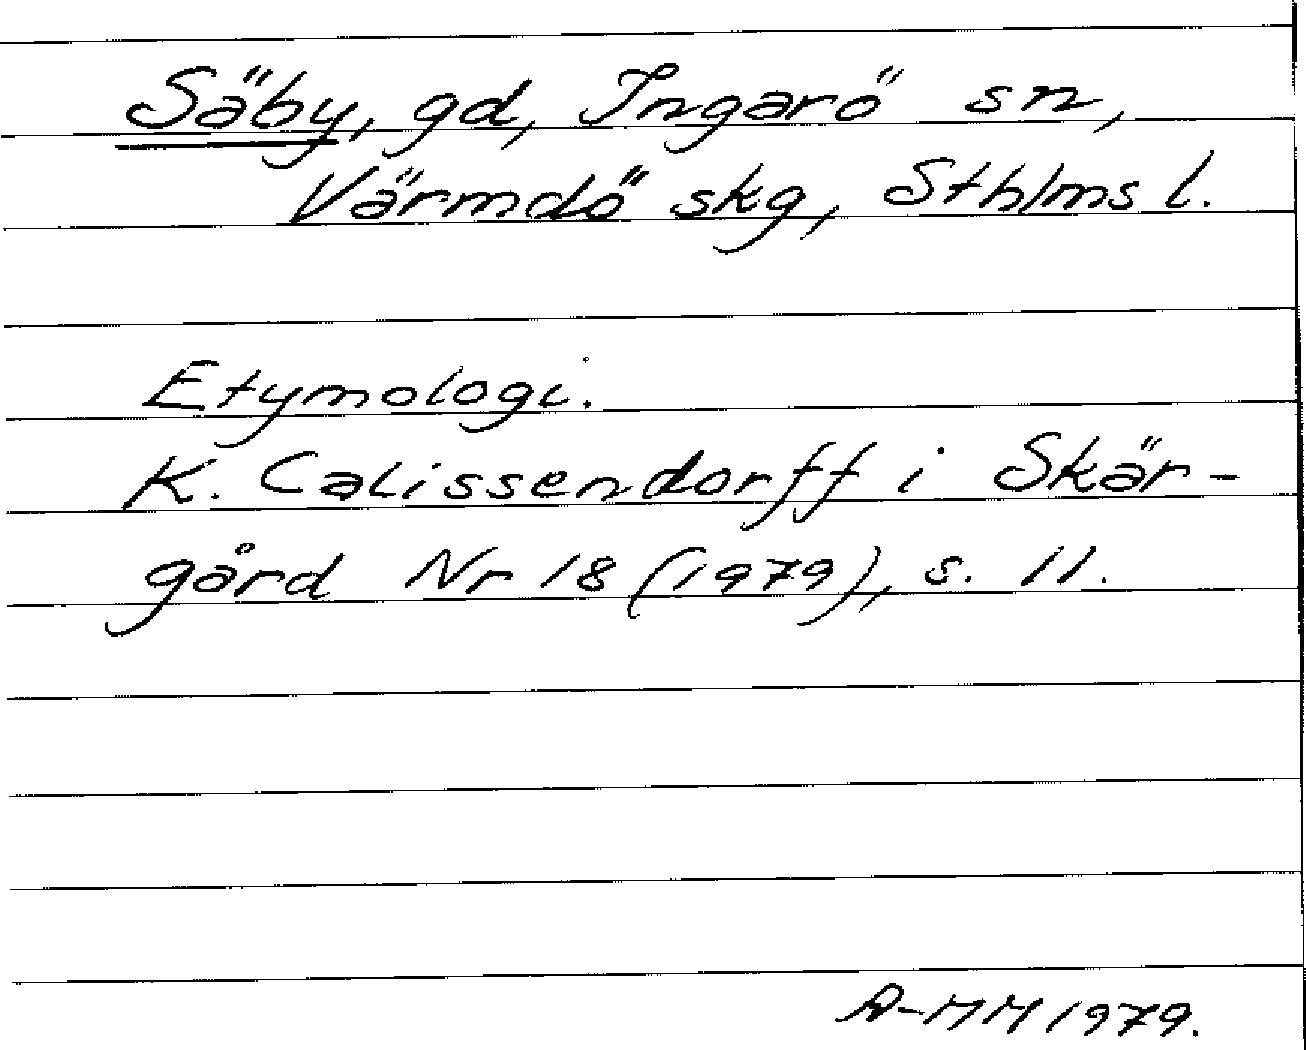 Säby, gd, Ingarö sn,
Värmdö skg, Sthlms l.
Etymologi.
K. Calissendorff i Skär-
gård Nr 18 (1979), s. 11.
A-MM 1979.